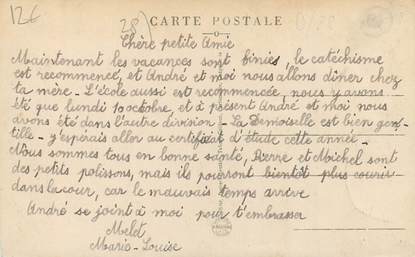 12€
28)
CARTE POSTALE
Chère petite Amie
Maintenant les vacances sont finies, le catéchisme
est recommencé, et André et moi nous allons dîner chez
ta mère. L'école aussi est recommencée, nous y avons
été que lundi 10 octobre, et à présent André et moi nous
avons été dans l'autre division. La Demoiselle est bien gen-
tille. J'espérais aller au certificat d'étude cette année.
Nous sommes tous en bonne santé, Pierre et Michel sont
des petits polissons, mais ils pourront bientôt plus courir
dans la cour, car le mauvais temps arrive
André se joint à moi pour t'embrasser
Melet
Marie-Louise